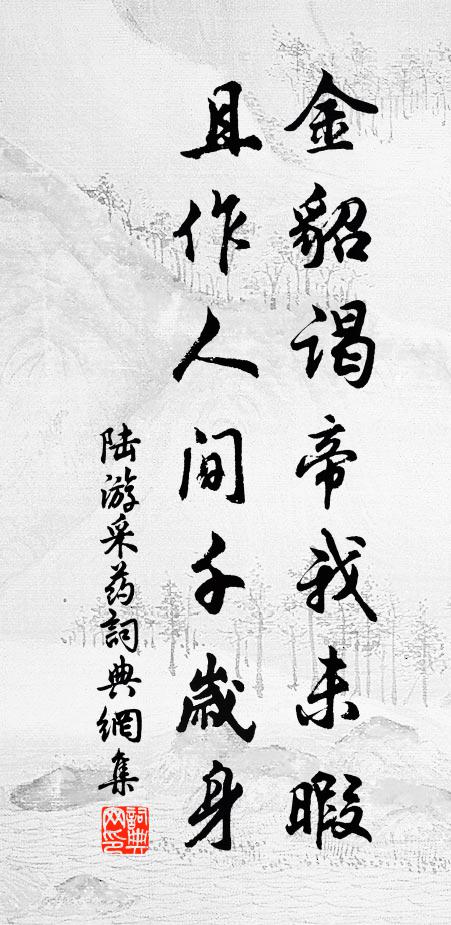 金貂谒帝我未暇
且作人间千歲身
陆游采药詞典網集
詞典网印